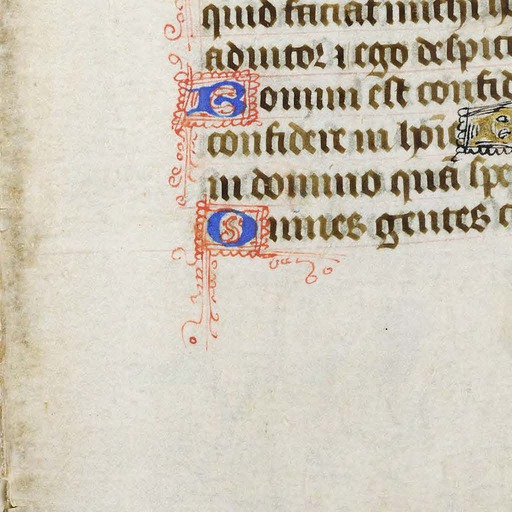 quid faciat michi h
adiutor ⁊ ego despici
Bonum est confid
confidere in hoı̄e
in domino quā spe
Omnes gentes c